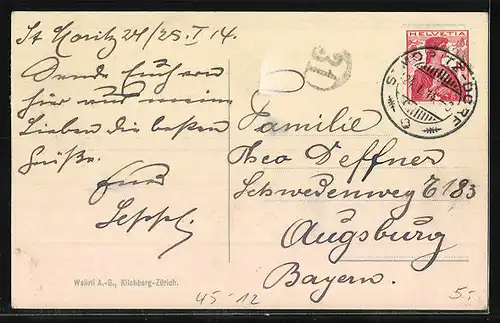 St Moritz 24/25. I 14.
Sende Euch von
hier aus meine
Lieben die besten
Grüße.
Euer
Seppl.
HELVETIA
S. MORITZ-DORF
31
Familie
Theo Deffner
Schwedenweg E 183
Augsburg
Bayern.
Wehrli A.-G., Kilchberg-Zürich.
45-12
5.-